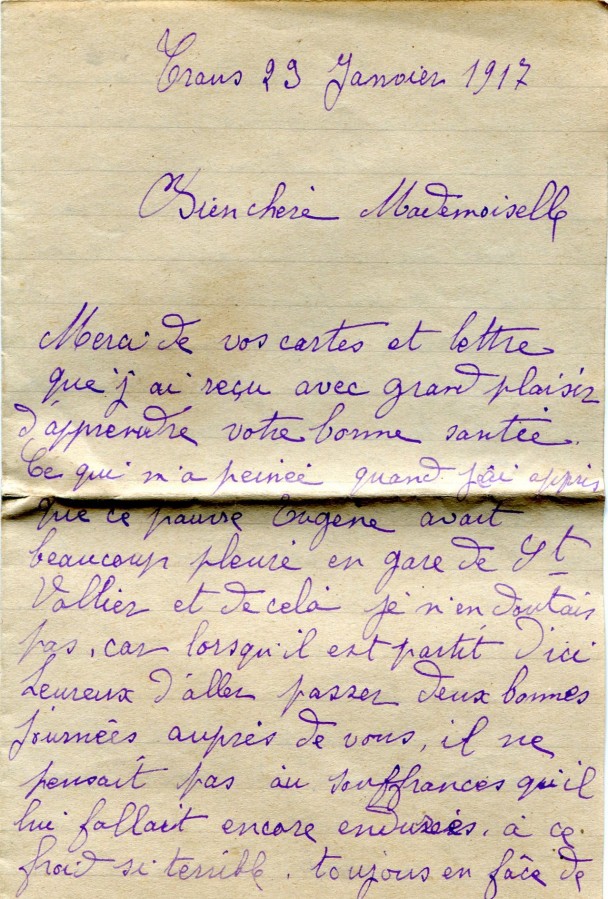 Traus 29 Janvier 1917
Bien cheré Mademoiselle
Merci de vos cartes et lettre
que j'ai reçu avec grand plaisir
d'apprendre votre bonne santée.
Ce qui m'a peinée quand j'ai appris
que ce pauvre Eugene avait
beaucoup pleuré en gare de St
Vallier et de celà je n'en doutais
pas, car lorsqu'il est partit d'ici
heureux d'aller passer deux bonnes
journées auprés de vous, il ne
pensait pas au souffrances qu'il
lui fallait encore endurées, à ce
froid si terrible, toujours en fâce de